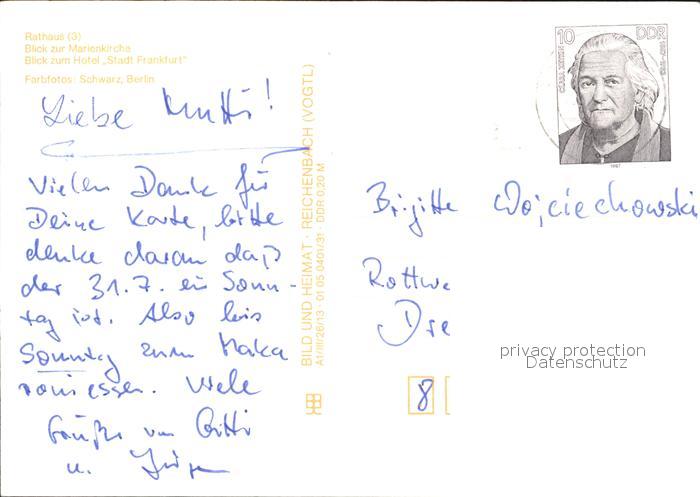 Rathaus (3)
Blick zur Marienkirche
Blick zum Hotel „Stadt Frankfurt"
Farbfotos: Schwarz, Berlin
Liebe Mutti!
Vielen Dank für
Deine Karte, bitte
denke daran daß
der 31.7. ein Sonn-
tag ist. Also bis
Sonntag zum Maka
roniessen. Viele
Grüße von Gitti
u. Jürgen
BILD UND HEIMAT · REICHENBACH (VOGTL)
A1/III/26/13 · 01 05 0401/31 · DDR 0,20 M
10 DDR
1987
Brigitte Wojciechowski
Rottwe
Dre
8
privacy protection
Datenschutz